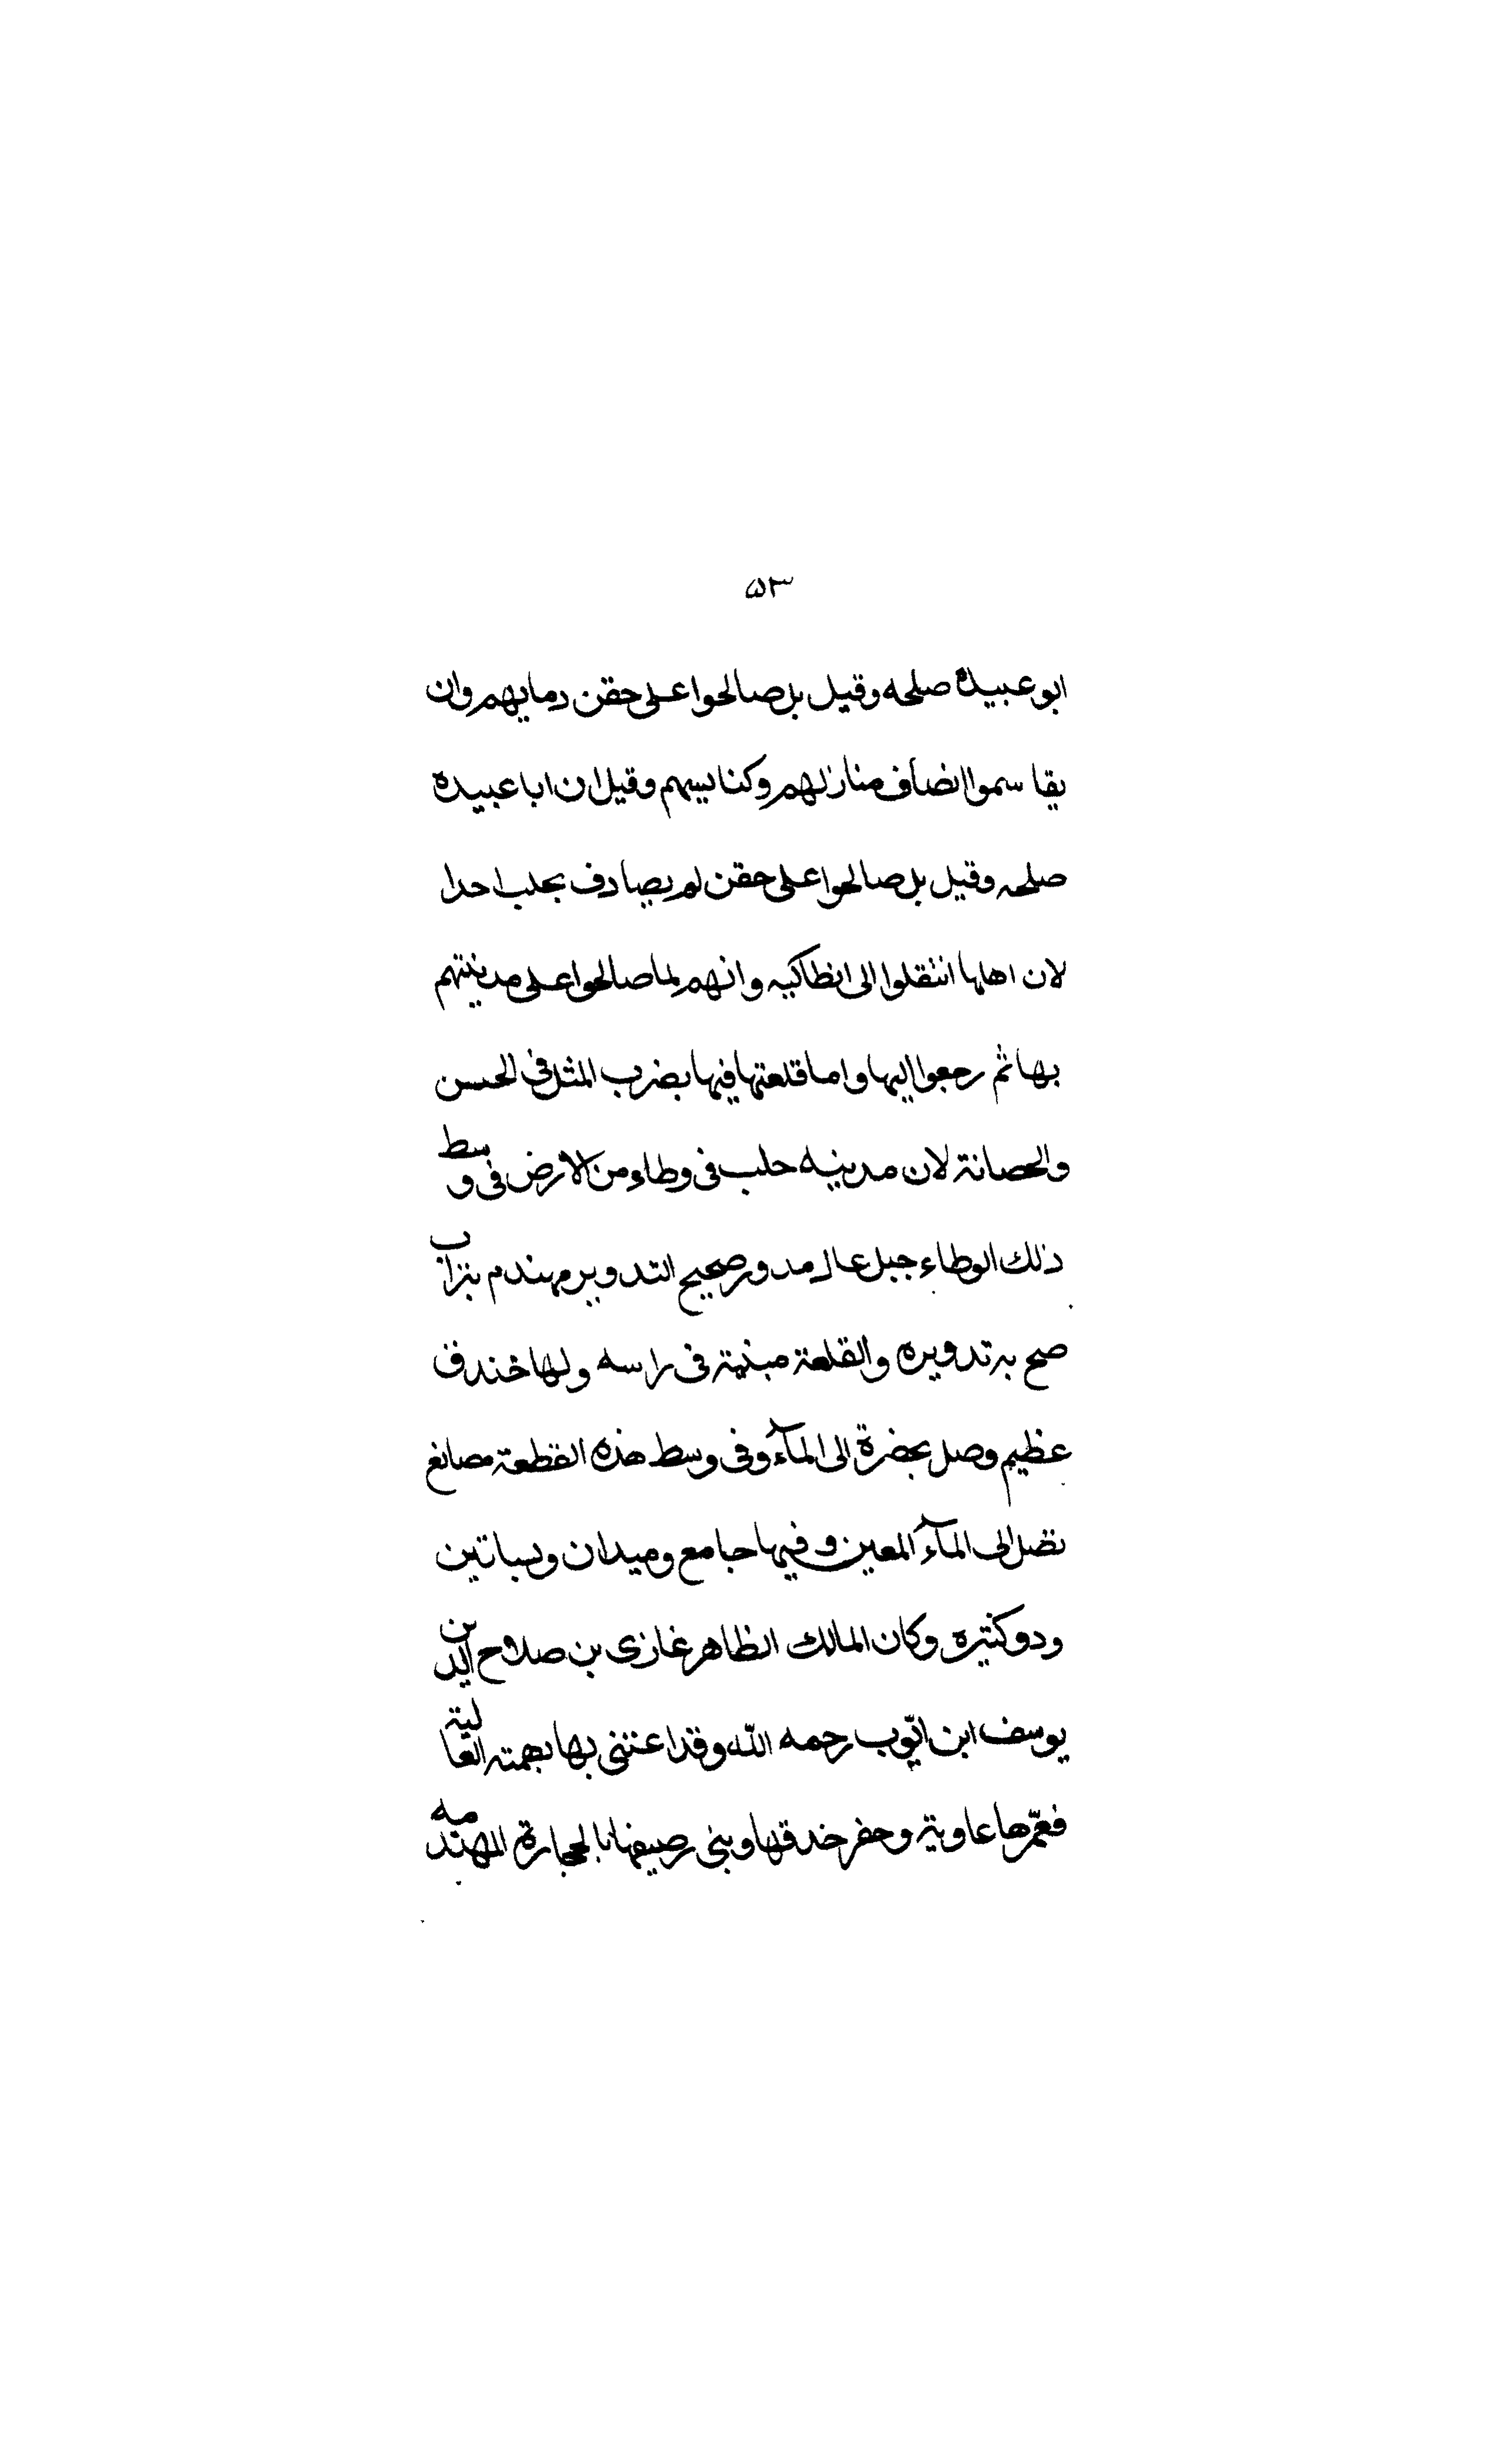 ٥٣
ابو عبيدة صلحه وقيل بل صالحوا على حقن دمايهم وان
يقاسموا انصاف منازلهم وكنايسهم وقيل ان ابا عبيده
صلحه وقيل بل صالحوا على حقن لم يصادف بحلب احدا
لان اهلها انتقلوا الى انطاكيه وانهم لما صالحوا على مدينتهم
بها ثم رجعوا اليها واما قلعتها فبها يضرب المثل في الحسن
والحصانة لان مدينه حلب في وطاء من الارض في وسط
ذلك الوطاء جبل عال مدور صحيح التدوير مهندم بتراب
صح به تدويره والقلعة مبنية في راسه ولها خندق
عظيم وصل بحضرة الى المآء وفي وسط هذه القطعة مصانع
تصل الى المآء المعين وفيها جامع وميدان وبساتين
ودو كثيره وكان المالك الظاهر غازى بن صلاح الدين
يوسف ابن ايّوب رحمه الله وقد اعتنى بها بهمته العالية
فعمّرها عاوية وحفر خدقها وبنى رصيفها بالحجارة المهندمه